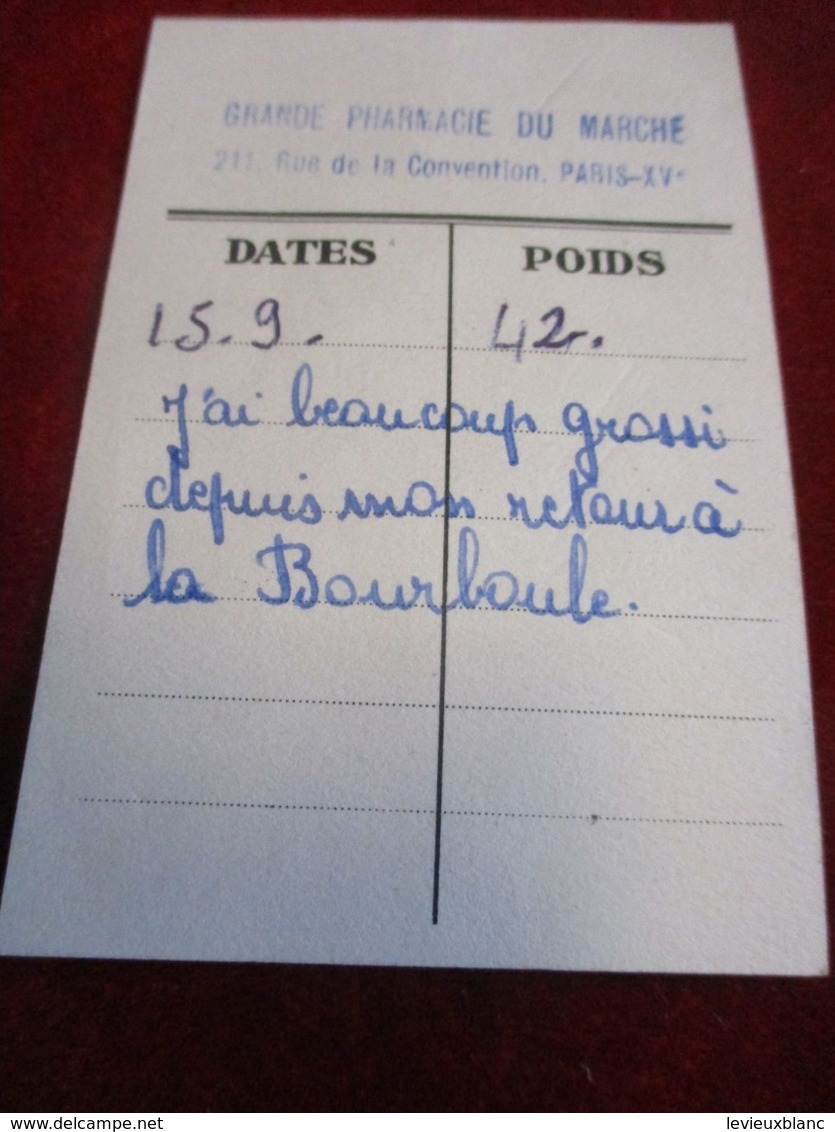 GRANDE PHARMACIE DU MARCHE
211, Rue de la Convention, PARIS-XVe
DATES POIDS
15.9. 42.
J'ai beaucoup grossi
depuis mon retour à
la Bourboule.
www.delcampe.net
levieuxblanc